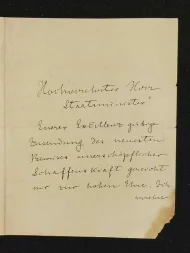 Hochverehrter Herr
Staatsminister
Euerer Exzellenz gütige
Zusendung des neuesten
Beweises unerschöpflicher
Schaffenskraft gereicht
mir zur hohen Ehre. Ich